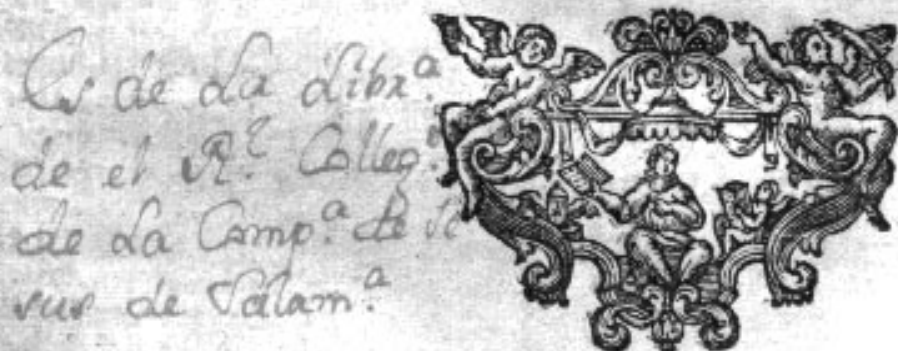 Es de La Libr.ª
de el R.ˡ Colleg.º
de La Comp.ª de Je
sus de Salam.ª